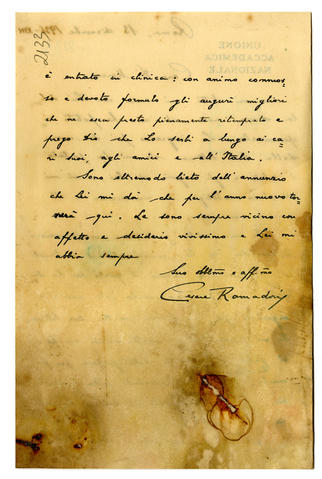 2133
è entrato in clinica: con animo commos-
so e devoto formulo gli auguri migliori
che ne esca presto pienamente ritemprato e
prego Dio che Lo serbi a lungo ai ca-
ri suoi, agli amici e all'Italia.
Sono oltremodo lieto dell'annunzio
che Lei mi dà che per l'anno nuovo tor-
nerà qui. Le sono sempre vicino con
affetto e desiderio vivissimo e Lei mi
abbia sempre
Suo obbl.mo e aff.mo
Cesare
UNIONE
ACCADEMICA
NAZIONALE